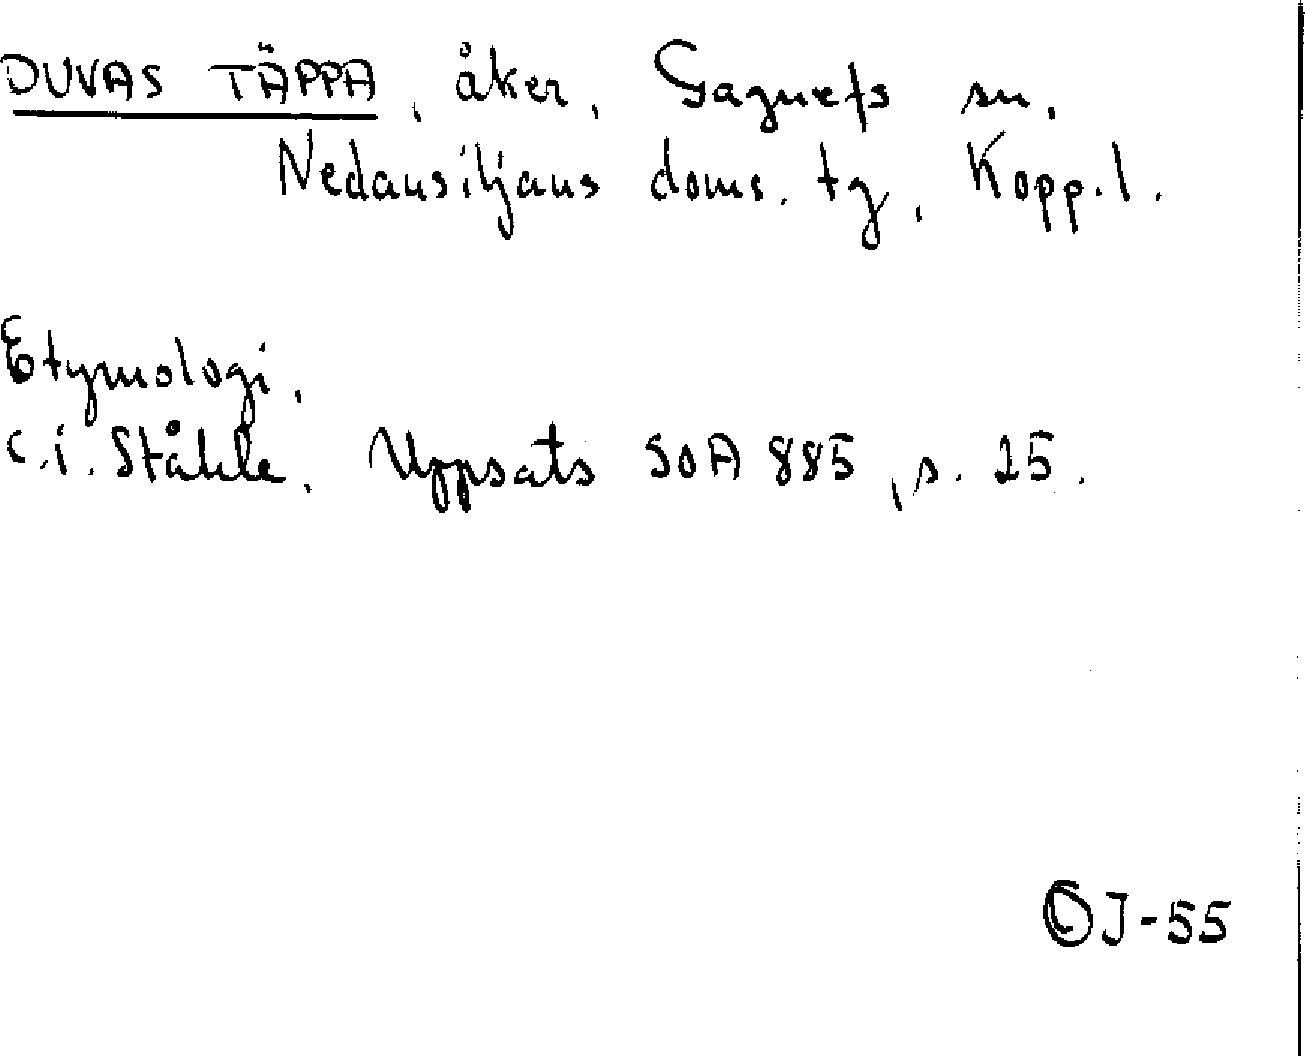 DUVAS TÄPPA, åker, Gagnefs sn,
Nedansiljans doms. tg, Kopp. l.
Etymologi.
C.i. Ståhle, Uppsats SOA 885, s. 25.
OJ-55